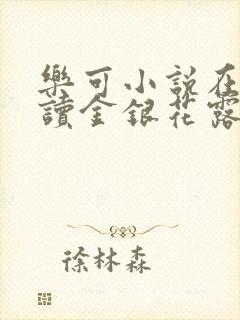 樂可小說在
讀金銀花露
徐林森